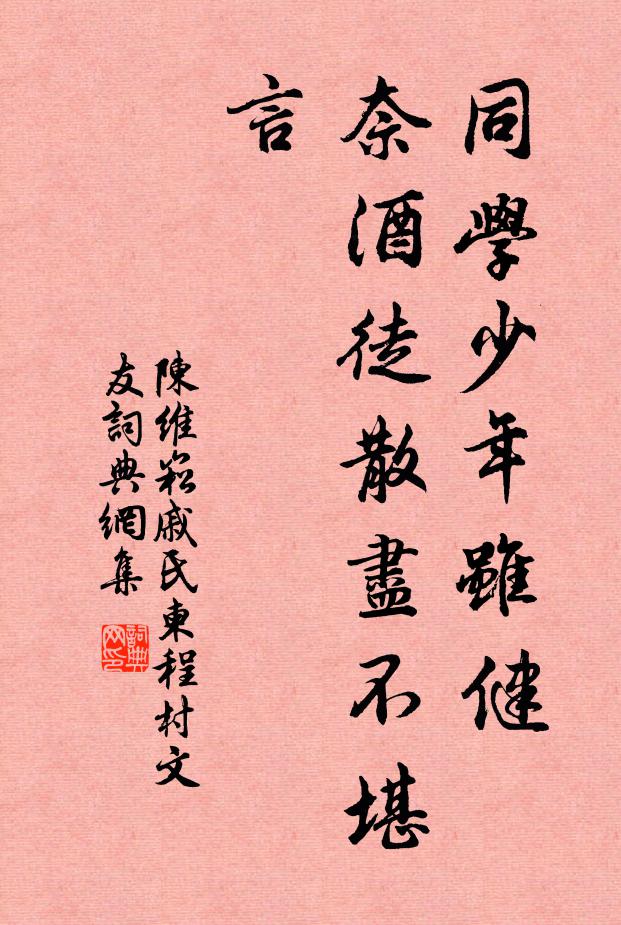 同學少年雖健
奈酒徒散盡不堪
言
陳維崧戚氏東程村文
友詞典網集
詞典
网印